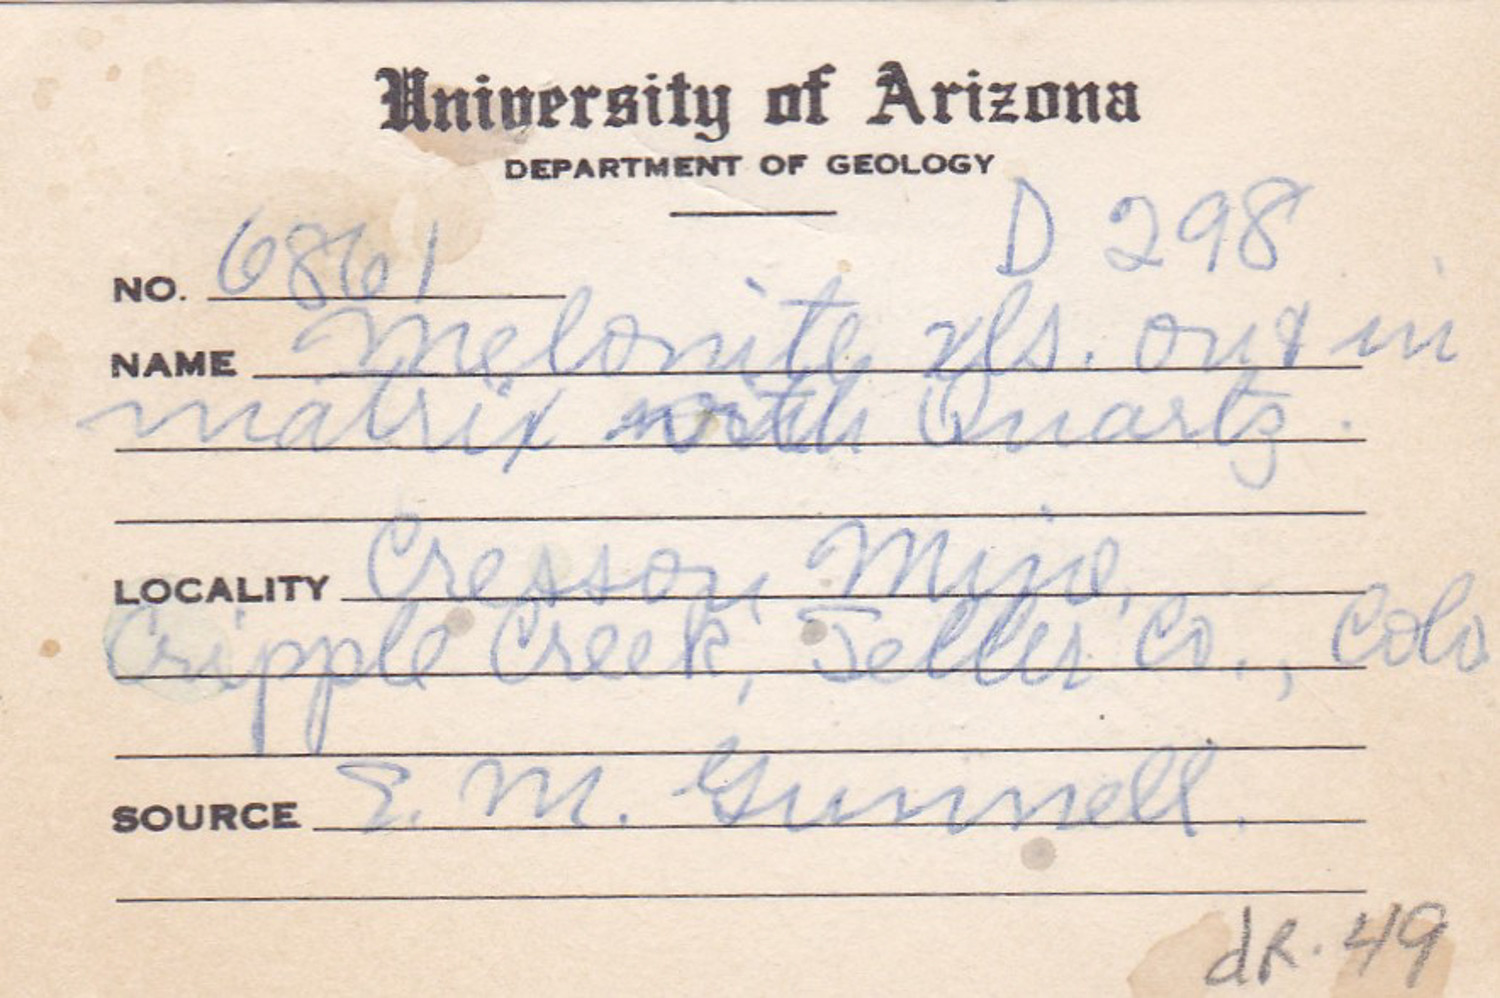 University of Arizona
DEPARTMENT OF GEOLOGY
D 298
NO. 6861
NAME Melonite xls. on & in
matrix with Quartz.
LOCALITY Cresson Mine,
Cripple Creek, Teller Co., Colo
SOURCE E. M. Gunnell.
dR. 49